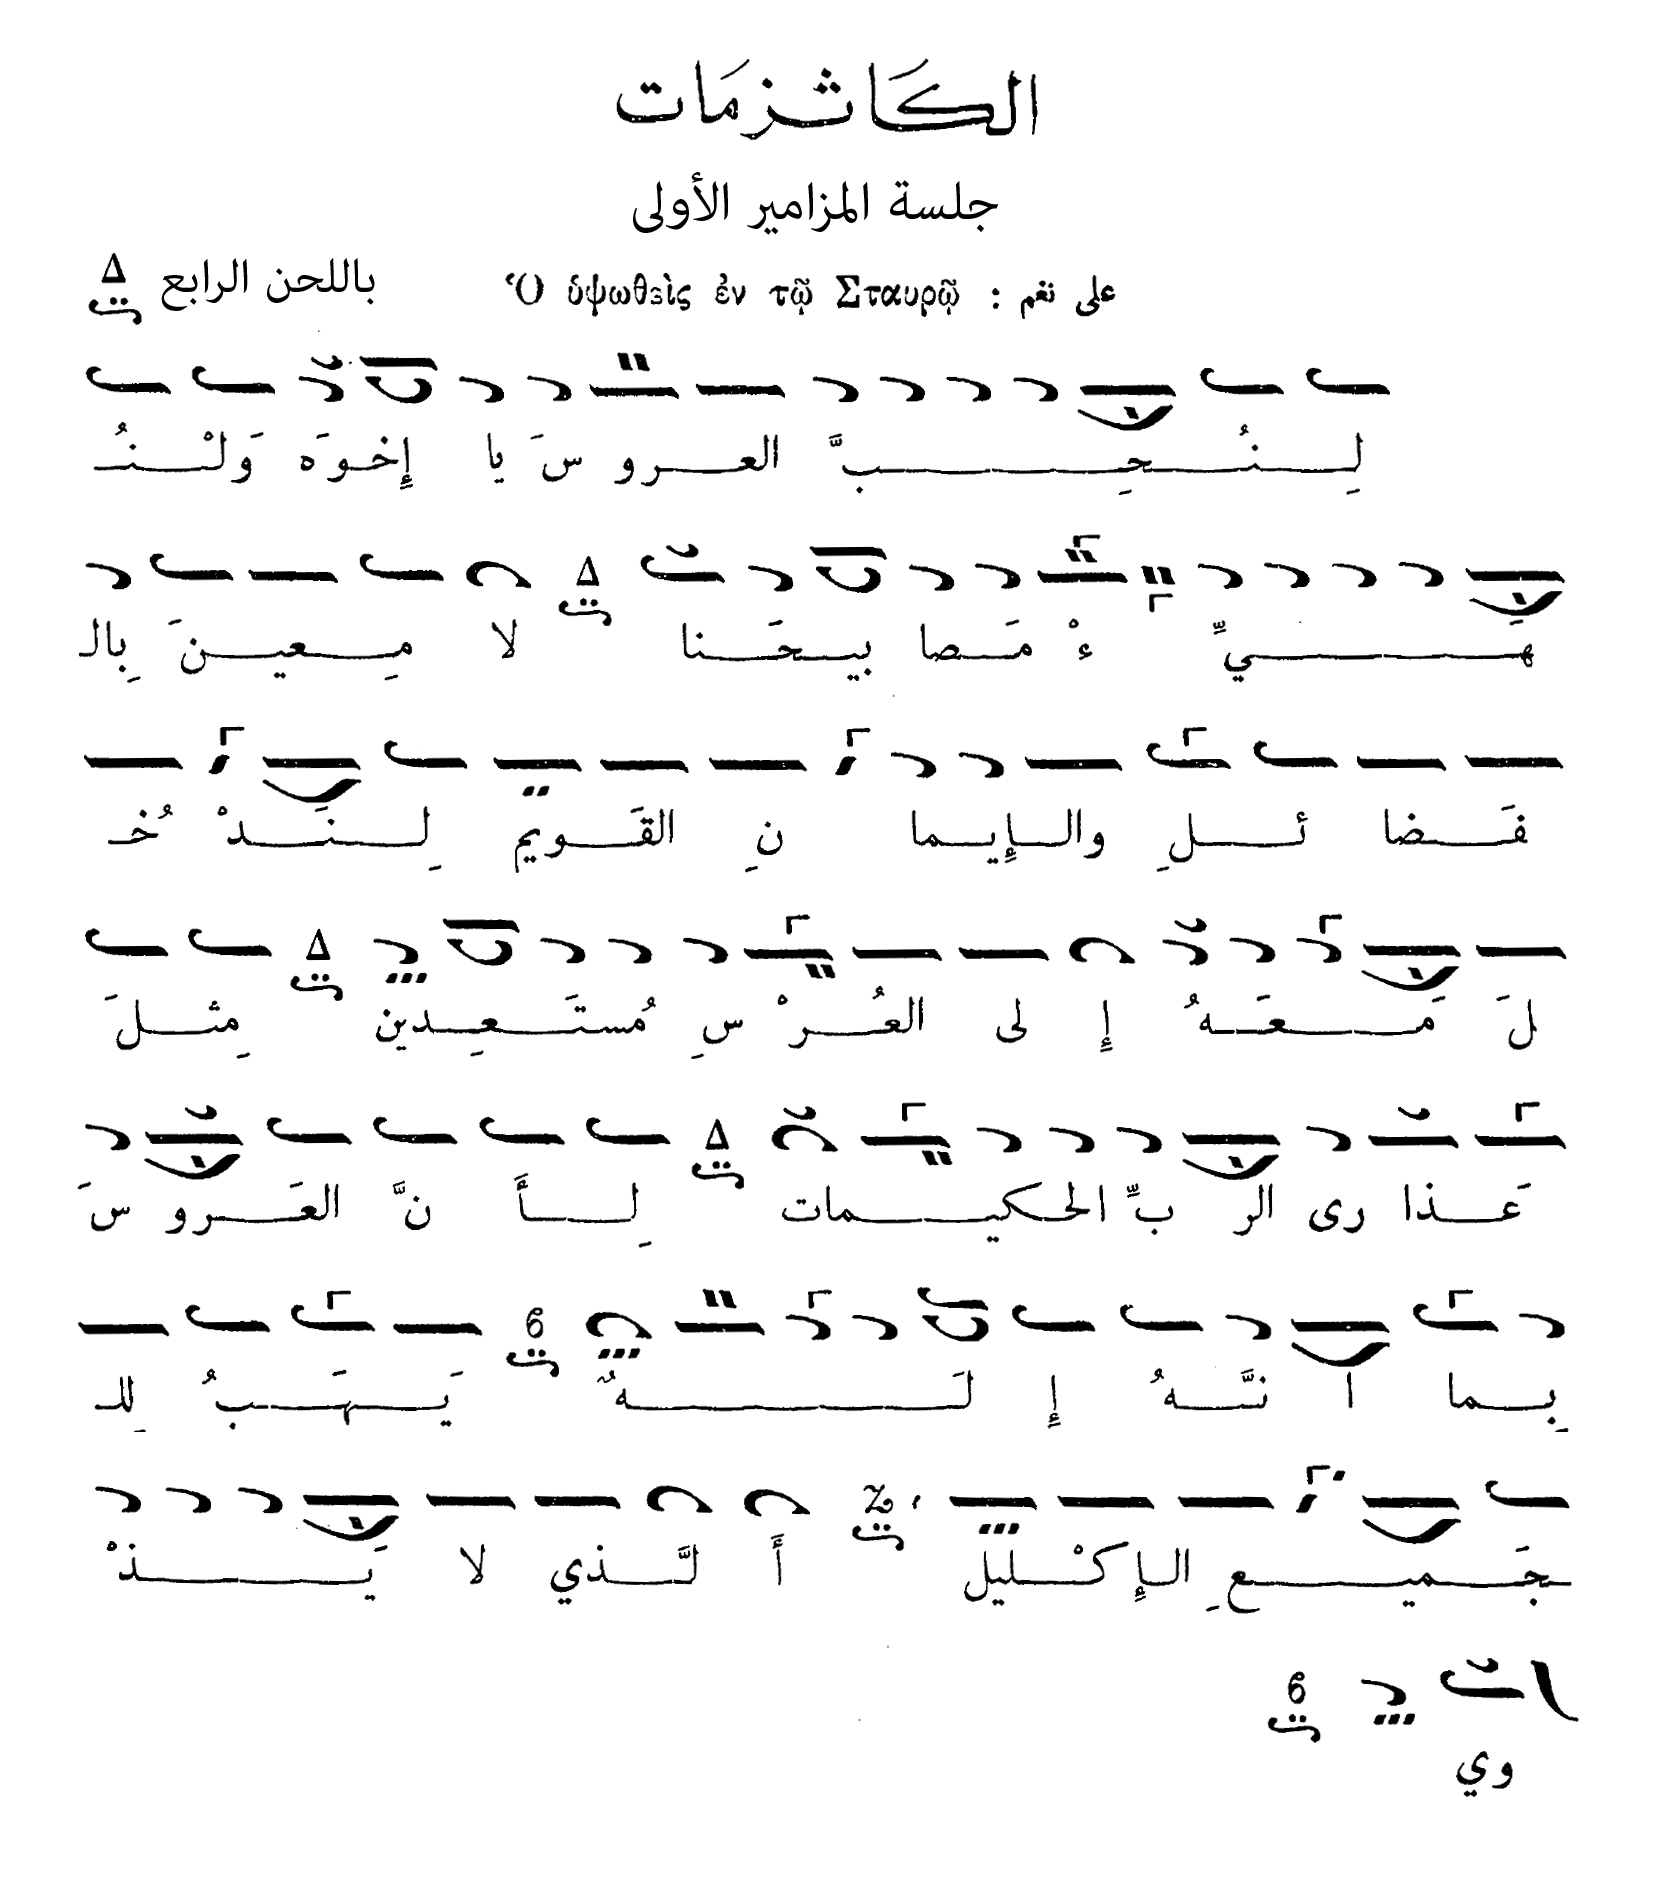 الكَاثِزمَات
جلسة المزامير الأولى
على نغم : Ὁ ὑψωθεὶς ἐν τῷ Σταυρῷ باللحن الرابع Δ
لِنُحِبَّ العروسَ يا إِخوَه وَلْنُـ
هَيِّءْ مَصابيحَنا Δ لا مِعينَ بِالـ
فَضائلِ والإِيمانِ القَويم لِنَدْخُـ
لَ مَعَهُ إِلى العُرْسِ مُستَعِدين Δ مِثلَ
عَذارى الربِّ الحكيمات Δ لِأَنَّ العَروسَ
بِما انَّهُ إِلَهٌ يَهَبُ لِلـ
ـجَميعِ الإِكْليل أَلَّذي لا يَذْ
وي